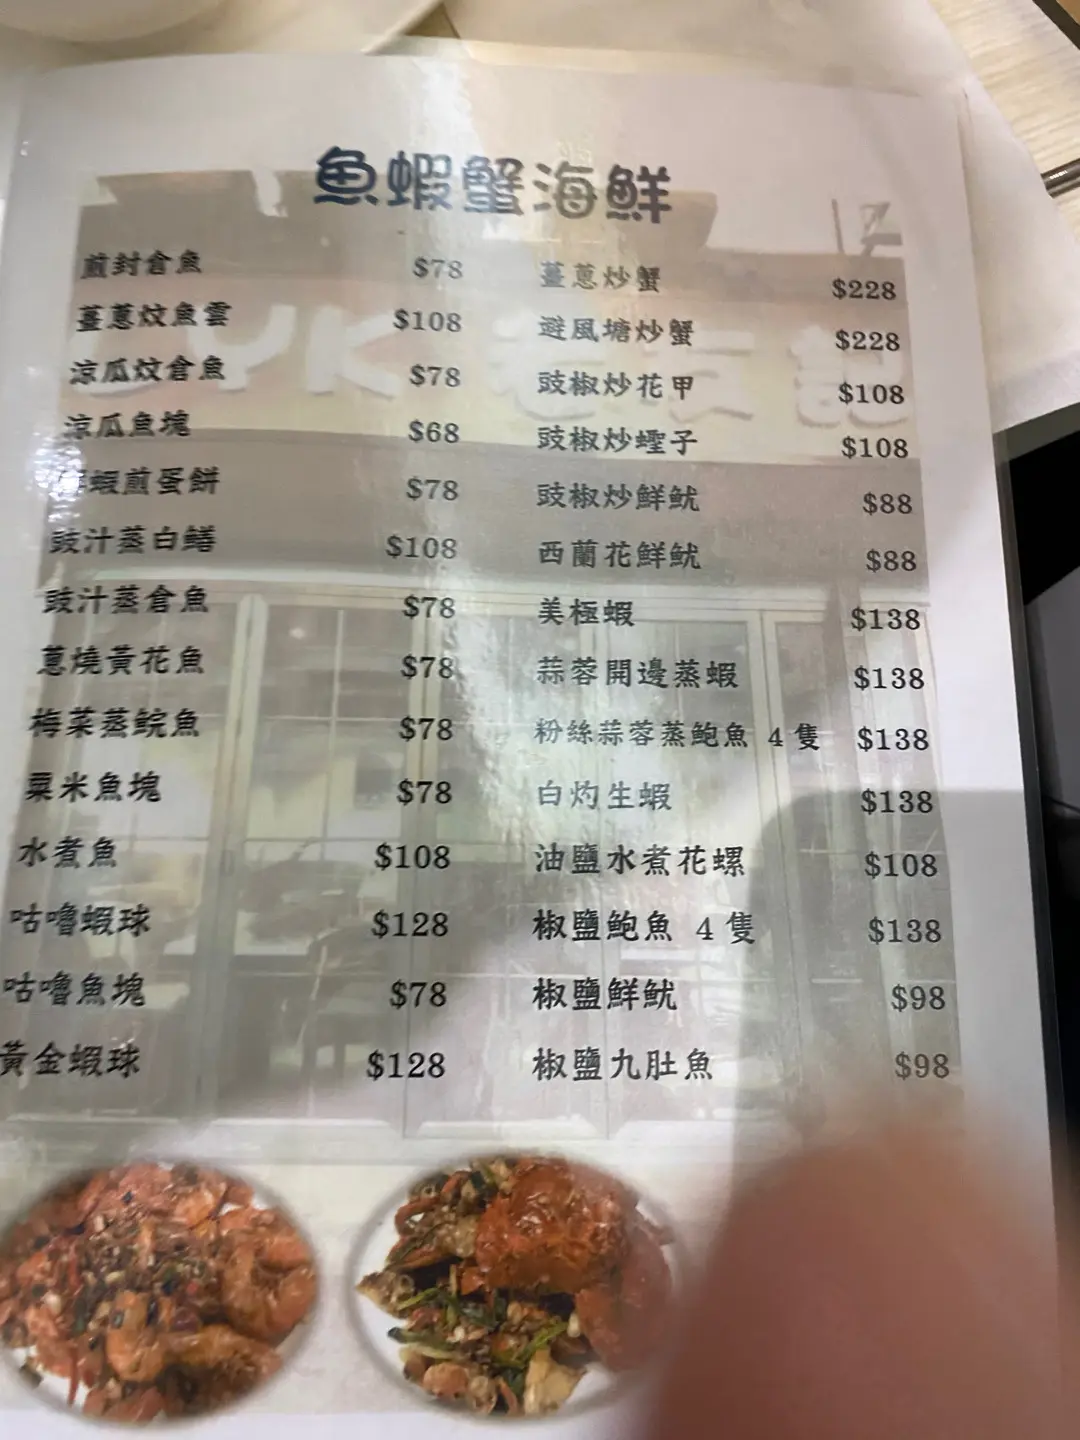 魚蝦蟹海鮮
煎封倉魚 $78
薑蔥炆魚雲 $108
涼瓜炆倉魚 $78
涼瓜魚塊 $68
蝦煎蛋餅 $78
豉汁蒸白鱔 $108
豉汁蒸倉魚 $78
蔥燒黃花魚 $78
梅菜蒸鯇魚 $78
粟米魚塊 $78
水煮魚 $108
咕嚕蝦球 $128
咕嚕魚塊 $78
黃金蝦球 $128
薑蔥炒蟹 $228
避風塘炒蟹 $228
豉椒炒花甲 $108
豉椒炒蟶子 $108
豉椒炒鮮魷 $88
西蘭花鮮魷 $88
美極蝦 $138
蒜蓉開邊蒸蝦 $138
粉絲蒜蓉蒸鮑魚 4隻 $138
白灼生蝦 $138
油鹽水煮花螺 $108
椒鹽鮑魚 4隻 $138
椒鹽鮮魷 $98
椒鹽九肚魚 $98
YK